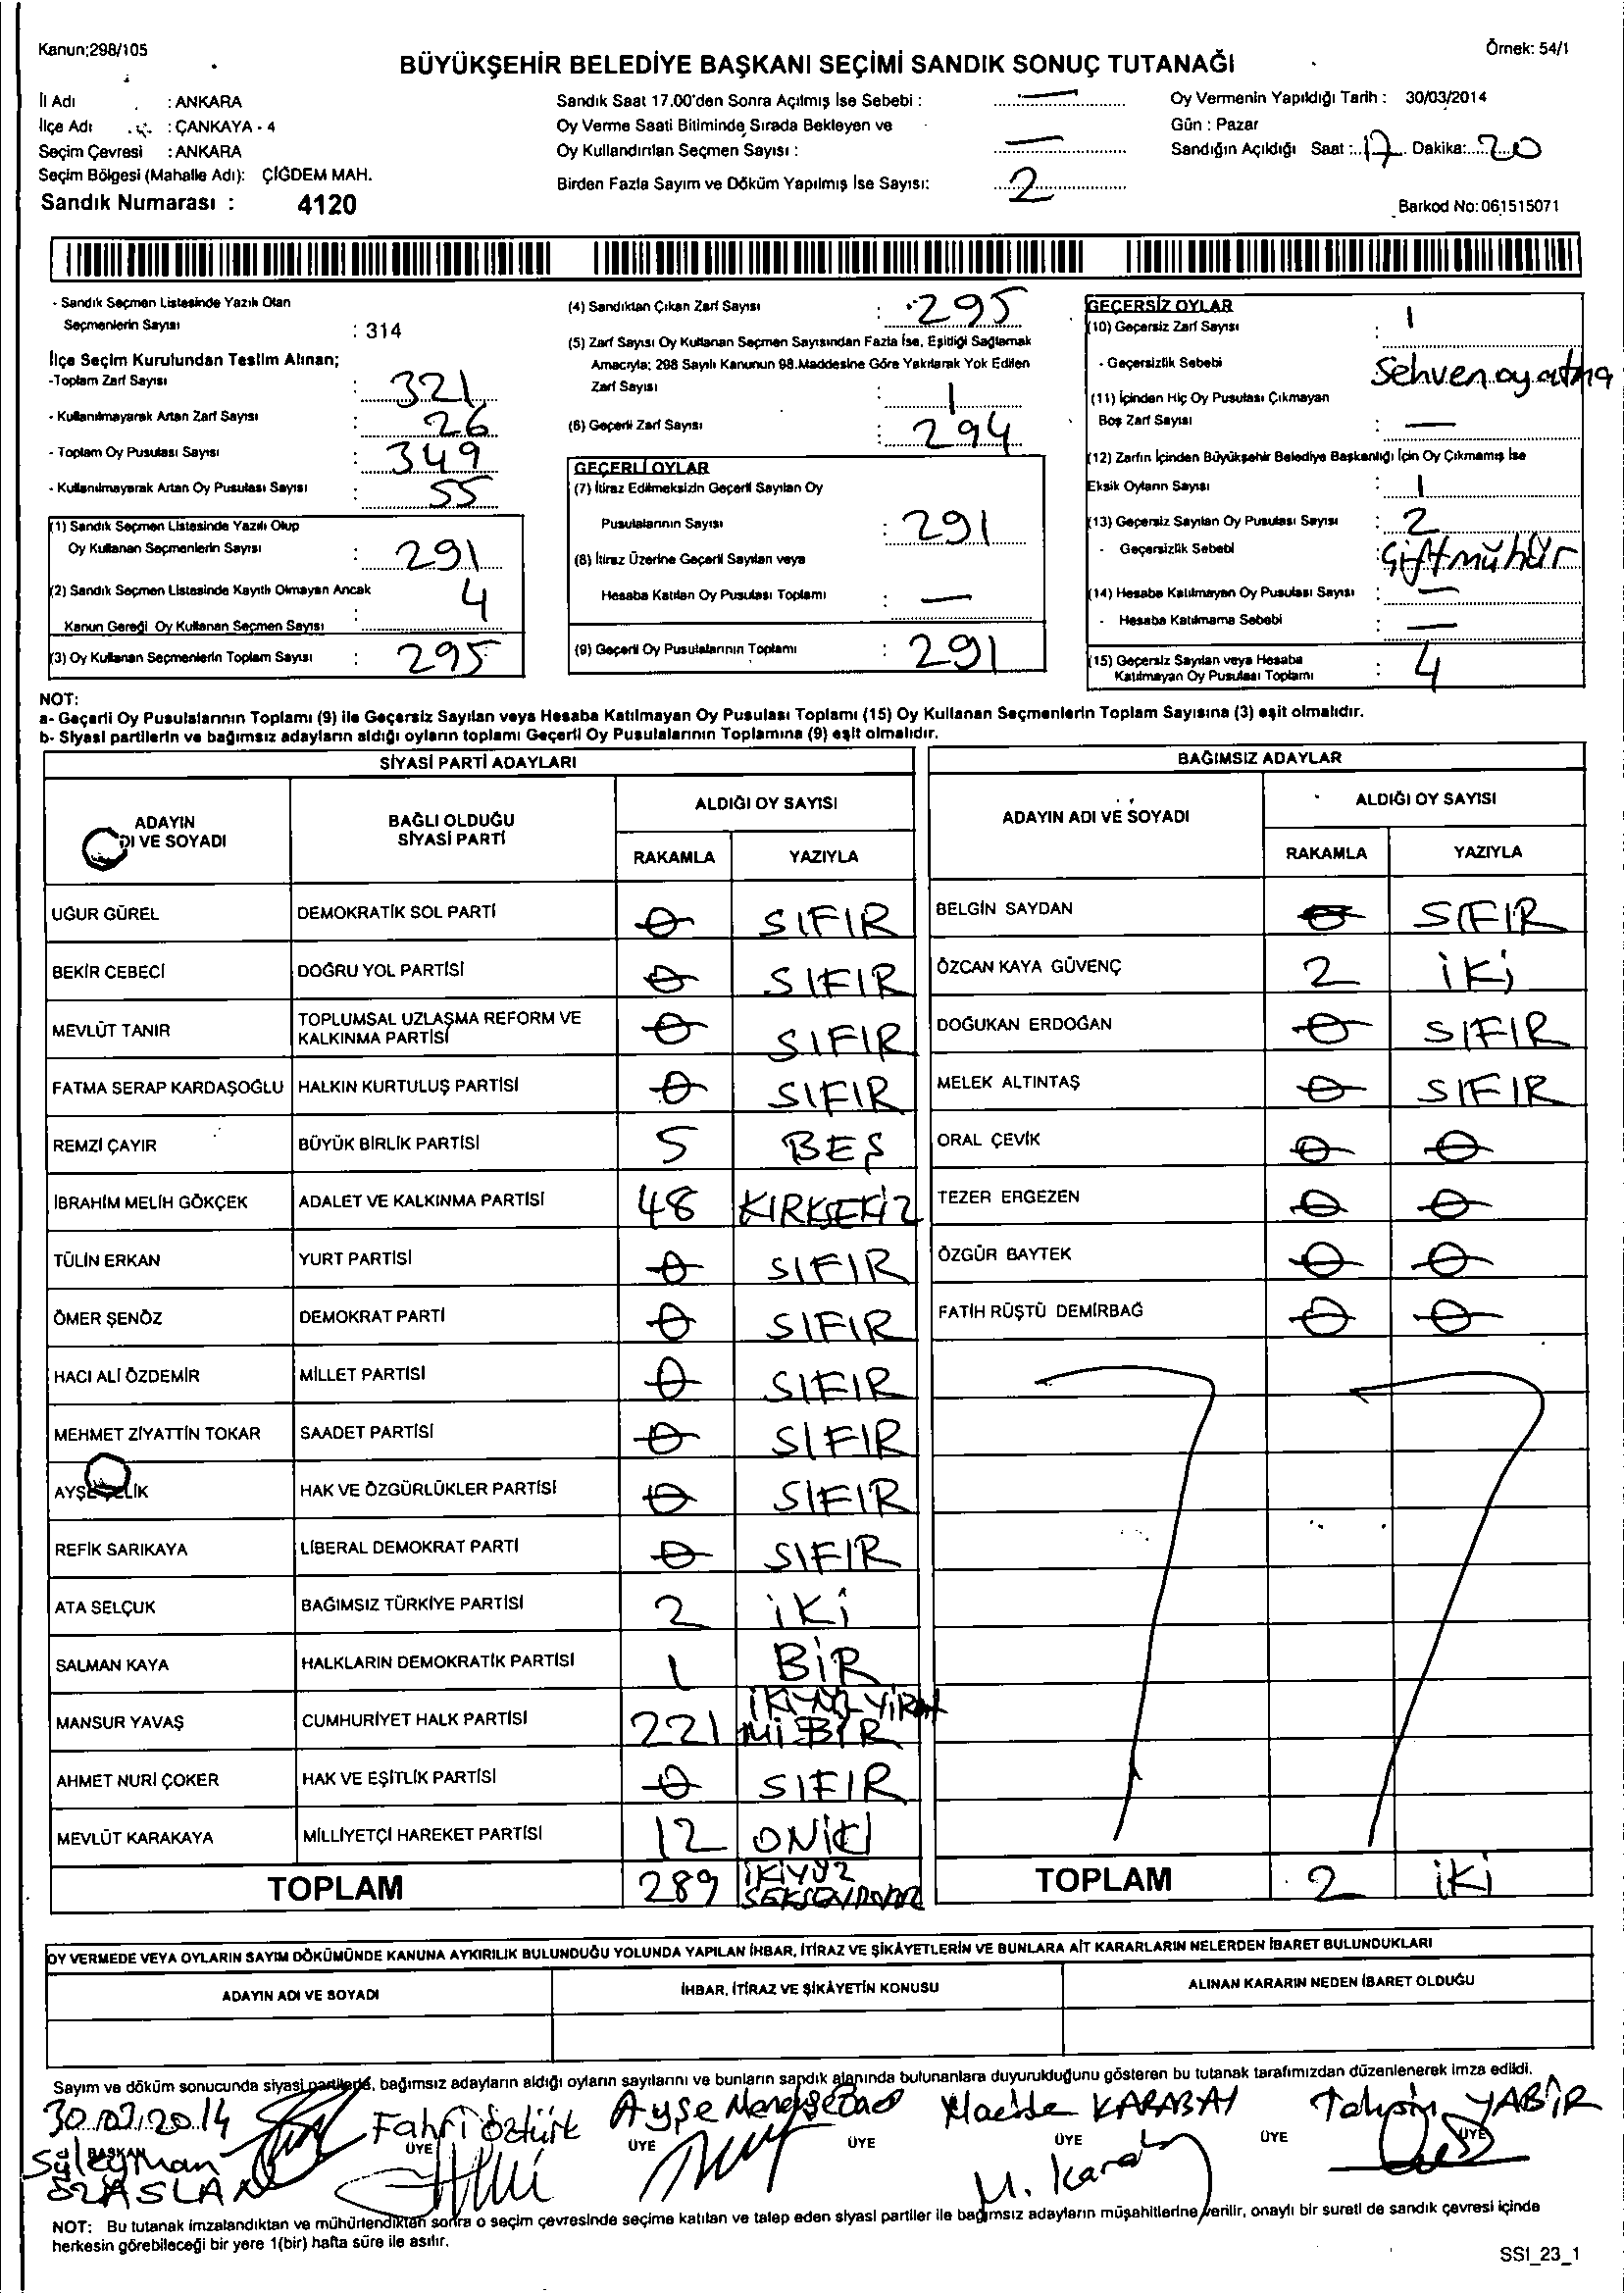 Kanun;298/105
Örnek: 54/1
BÜYÜKŞEHİR BELEDİYE BAŞKANI SEÇİMİ SANDIK SONUÇ TUTANAĞI
İl Adı : ANKARA
İlçe Adı : ÇANKAYA - 4
Seçim Çevresi : ANKARA
Seçim Bölgesi (Mahalle Adı): ÇİĞDEM MAH.
Sandık Numarası : 4120
Sandık Saat 17.00'den Sonra Açılmış İse Sebebi : —
Oy Verme Saati Bitiminde Sırada Bekleyen ve
Oy Kullandırılan Seçmen Sayısı : —
Birden Fazla Sayım ve Döküm Yapılmış İse Sayısı: 2
Oy Vermenin Yapıldığı Tarih : 30/03/2014
Gün : Pazar
Sandığın Açıldığı Saat : 17 Dakika: 20
Barkod No: 061515071
- Sandık Seçmen Listesinde Yazılı Olan
Seçmenlerin Sayısı : 314
İlçe Seçim Kurulundan Teslim Alınan;
-Toplam Zarf Sayısı : 321
- Kullanılmayarak Artan Zarf Sayısı : 26
- Toplam Oy Pusulası Sayısı : 349
- Kullanılmayarak Artan Oy Pusulası Sayısı : 55
(1) Sandık Seçmen Listesinde Yazılı Olup
Oy Kullanan Seçmenlerin Sayısı : 291
(2) Sandık Seçmen Listesinde Kayıtlı Olmayan Ancak
Kanun Gereği Oy Kullanan Seçmen Sayısı : 4
(3) Oy Kullanan Seçmenlerin Toplam Sayısı : 295
(4) Sandıktan Çıkan Zarf Sayısı : 295
(5) Zarf Sayısı Oy Kullanan Seçmen Sayısından Fazla İse, Eşitliği Sağlamak
Amacıyla; 298 Sayılı Kanunun 98.Maddesine Göre Yakılarak Yok Edilen
Zarf Sayısı : 1
(6) Geçerli Zarf Sayısı : 294
GEÇERLİ OYLAR
(7) İtiraz Edilmeksizin Geçerli Sayılan Oy
Pusulalarının Sayısı : 291
(8) İtiraz Üzerine Geçerli Sayılan veya
Hesaba Katılan Oy Pusulası Toplamı : —
(9) Geçerli Oy Pusulalarının Toplamı : 291
GEÇERSİZ OYLAR
(10) Geçersiz Zarf Sayısı : 1
- Geçersizlik Sebebi : Sehven oy atma
(11) İçinden Hiç Oy Pusulası Çıkmayan
Boş Zarf Sayısı : —
(12) Zarfın İçinden Büyükşehir Belediye Başkanlığı İçin Oy Çıkmamış İse
Eksik Oyların Sayısı : 1
(13) Geçersiz Sayılan Oy Pusulası Sayısı : 2
- Geçersizlik Sebebi : Çift mühür
(14) Hesaba Katılmayan Oy Pusulası Sayısı : —
- Hesaba Katılmama Sebebi : —
(15) Geçersiz Sayılan veya Hesaba
Katılmayan Oy Pusulası Toplamı : 4
NOT:
a- Geçerli Oy Pusulalarının Toplamı (9) ile Geçersiz Sayılan veya Hesaba Katılmayan Oy Pusulası Toplamı (15) Oy Kullanan Seçmenlerin Toplam Sayısına (3) eşit olmalıdır.
b- Siyasi partilerin ve bağımsız adayların aldığı oyların toplamı Geçerli Oy Pusulalarının Toplamına (9) eşit olmalıdır.
SİYASİ PARTİ ADAYLARI
ADAYIN
ADI VE SOYADI
BAĞLI OLDUĞU
SİYASİ PARTİ
ALDIĞI OY SAYISI
RAKAMLA YAZIYLA
UĞUR GÜREL DEMOKRATİK SOL PARTİ 0 SIFIR
BEKİR CEBECİ DOĞRU YOL PARTİSİ 0 SIFIR
MEVLÜT TANIR TOPLUMSAL UZLAŞMA REFORM VE
KALKINMA PARTİSİ 0 SIFIR
FATMA SERAP KARDAŞOĞLU HALKIN KURTULUŞ PARTİSİ 0 SIFIR
REMZİ ÇAYIR BÜYÜK BİRLİK PARTİSİ 5 BEŞ
İBRAHİM MELİH GÖKÇEK ADALET VE KALKINMA PARTİSİ 48 KIRKSEKİZ
TÜLİN ERKAN YURT PARTİSİ 0 SIFIR
ÖMER ŞENÖZ DEMOKRAT PARTİ 0 SIFIR
HACI ALİ ÖZDEMİR MİLLET PARTİSİ 0 SIFIR
MEHMET ZİYATTİN TOKAR SAADET PARTİSİ 0 SIFIR
AYŞE ÇELİK HAK VE ÖZGÜRLÜKLER PARTİSİ 0 SIFIR
REFİK SARIKAYA LİBERAL DEMOKRAT PARTİ 0 SIFIR
ATA SELÇUK BAĞIMSIZ TÜRKİYE PARTİSİ 2 İKİ
SALMAN KAYA HALKLARIN DEMOKRATİK PARTİSİ 1 BİR
MANSUR YAVAŞ CUMHURİYET HALK PARTİSİ 221 İKİYÜZ YİR
Mİ BİR
AHMET NURİ ÇOKER HAK VE EŞİTLİK PARTİSİ 0 SIFIR
MEVLÜT KARAKAYA MİLLİYETÇİ HAREKET PARTİSİ 12 ONİKİ
TOPLAM 289 İKİYÜZ
SEKSENDOKUZ
BAĞIMSIZ ADAYLAR
ADAYIN ADI VE SOYADI
ALDIĞI OY SAYISI
RAKAMLA YAZIYLA
BELGİN SAYDAN 0 SIFIR
ÖZCAN KAYA GÜVENÇ 2 İKİ
DOĞUKAN ERDOĞAN 0 SIFIR
MELEK ALTINTAŞ 0 SIFIR
ORAL ÇEVİK 0 0
TEZER ERGEZEN 0 0
ÖZGÜR BAYTEK 0 0
FATİH RÜŞTÜ DEMİRBAĞ 0 0
TOPLAM 2 İKİ
OY VERMEDE VEYA OYLARIN SAYIM DÖKÜMÜNDE KANUNA AYKIRILIK BULUNDUĞU YOLUNDA YAPILAN İHBAR, İTİRAZ VE ŞİKÂYETLERİN VE BUNLARA AİT KARARLARIN NELERDEN İBARET BULUNDUKLARI
ADAYIN ADI VE SOYADI
İHBAR, İTİRAZ VE ŞİKÂYETİN KONUSU
ALINAN KARARIN NEDEN İBARET OLDUĞU
Sayım ve döküm sonucunda siyasi partilerle, bağımsız adayların aldığı oyların sayılarını ve bunların sandık alanında bulunanlara duyurulduğunu gösteren bu tutanak tarafımızdan düzenlenerek imza edildi.
30.03.2014
Fahri Öztürk
Ayşe
KARABAY
Tahsin YABİR
BAŞKAN ÜYE ÜYE ÜYE ÜYE ÜYE ÜYE
Süleyman
ÖZASLAN
M. Kara
NOT: Bu tutanak imzalandıktan ve mühürlendikten sonra o seçim çevresinde seçime katılan ve talep eden siyasi partiler ile bağımsız adayların müşahitlerine verilir, onaylı bir sureti de sandık çevresi içinde
herkesin görebileceği bir yere 1(bir) hafta süre ile asılır.
SSI_23_1